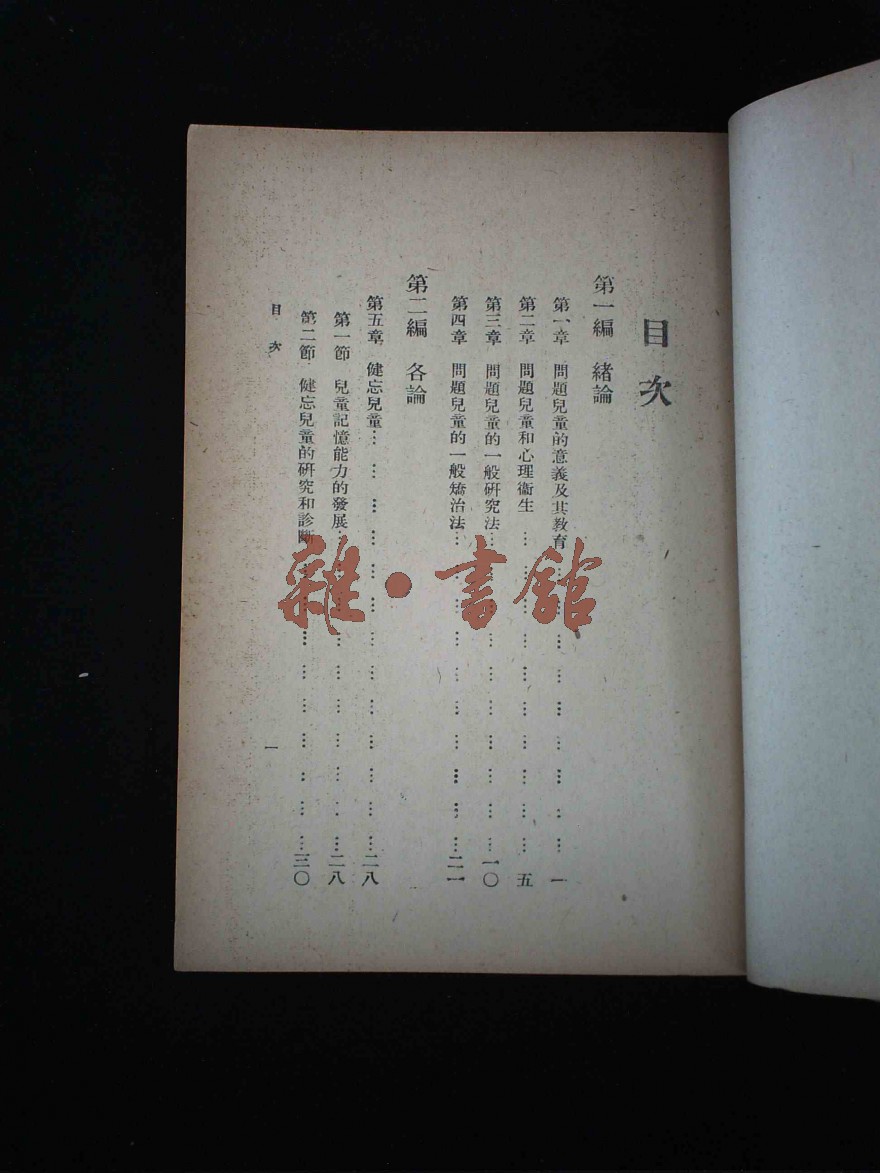 目次
第一編 緒論
第一章 問題兒童的意義及其教育……………………一
第二章 問題兒童和心理衞生……………………五
第三章 問題兒童的一般研究法……………………一〇
第四章 問題兒童的一般矯治法……………………二一
第二編 各論
第五章 健忘兒童……………………二八
第一節 兒童記憶能力的發展……………………二八
第二節 健忘兒童的研究和診斷……………………三〇
目次
一
雜·書館